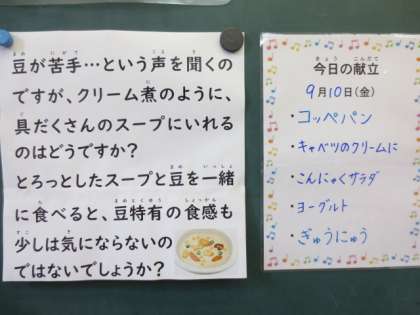 豆が苦手…という声を聞くの
ですが、クリーム煮のように、
具だくさんのスープにいれる
のはどうですか？
とろっとしたスープと豆を一緒
に食べると、豆特有の食感も
少しは気にならないの
ではないでしょうか？
今日の献立
9月10日(金)
・コッペパン
・キャベツのクリームに
・こんにゃくサラダ
・ヨーグルト
・ぎゅうにゅう